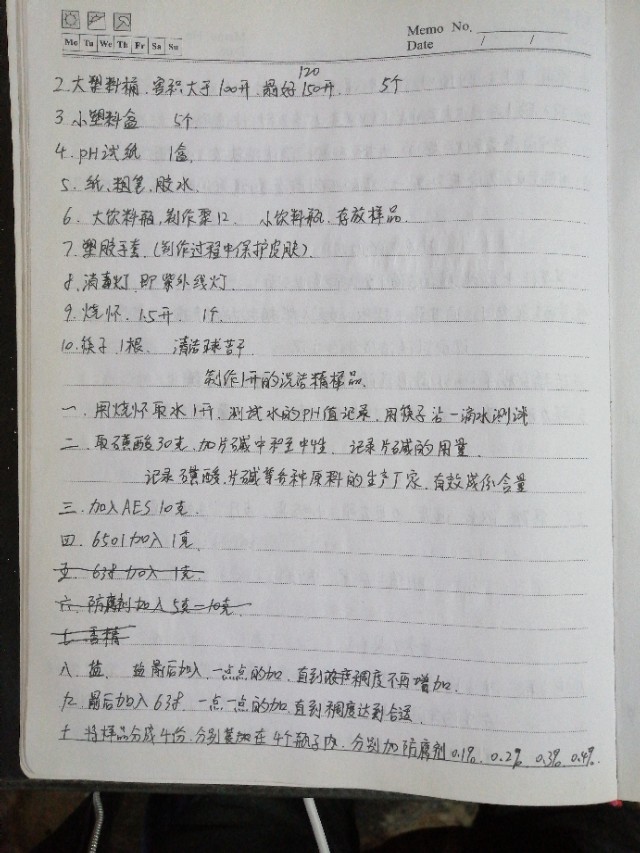 Memo No.
Mo Tu We Th Fr Sa Su
Date / /
120
2.大塑料桶.容积大于100升.最好150升. 5个
3.小塑料盒 5个.
4.pH试纸 1盒.
5.纸.粗笔.胶水.
6.大饮料瓶,制作漏斗. 小饮料瓶.存放样品.
7.塑胶手套.(制作过程中保护皮肤)
8.消毒灯.即紫外线灯.
9.烧怀. 1.5升. 1个.
10.筷子.1根. 清洁球若干.
制作1升的洗洁精样品.
一.用烧怀取水1升.测试水的PH值记录.用筷子沾一滴水测试
二.取磺酸30克.加片碱中和至中性. 记录片碱的用量.
记录磺酸.片碱等各种原料的生产厂家.有效成份含量
三.加入AES 10克.
四.6501加入1克.
五.638加入1克.
六.防腐剂加入5克=10克.
七.香精
八.盐. 盐最后加入.一点点的加.直到液体稠度不再增加.
九.最后加入638.一点一点的加.直到稠度达到合适.
十.将样品分成4份.分别装加在4个瓶子内.分别加防腐剂0.1%.0.2% 0.3% 0.4%.